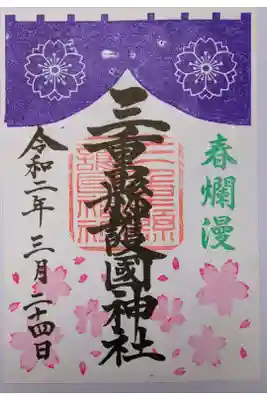 春爛漫
三重縣護國神社
令和二年 三月 二十四日